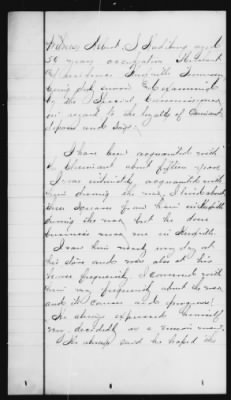 Witness Robert S. aged
50 years occupation Merchant
Residence Tennessee
being duly sworn & Examined
by the Special Commissioner
in regard to the loyalty of Claimant
deposes and says
I have been acquainted with
Claimant about fifteen years
I was intimately acquainted with
him during the war, I lived about
three squares from him in
during the war but he done
business near me in
I saw him nearly every day at
his store and was also at his
house frequently, I conversed with
him very frequently about the war
and its causes and progress.
He always expressed himself
very decidedly as a union man.
He always said he hoped the